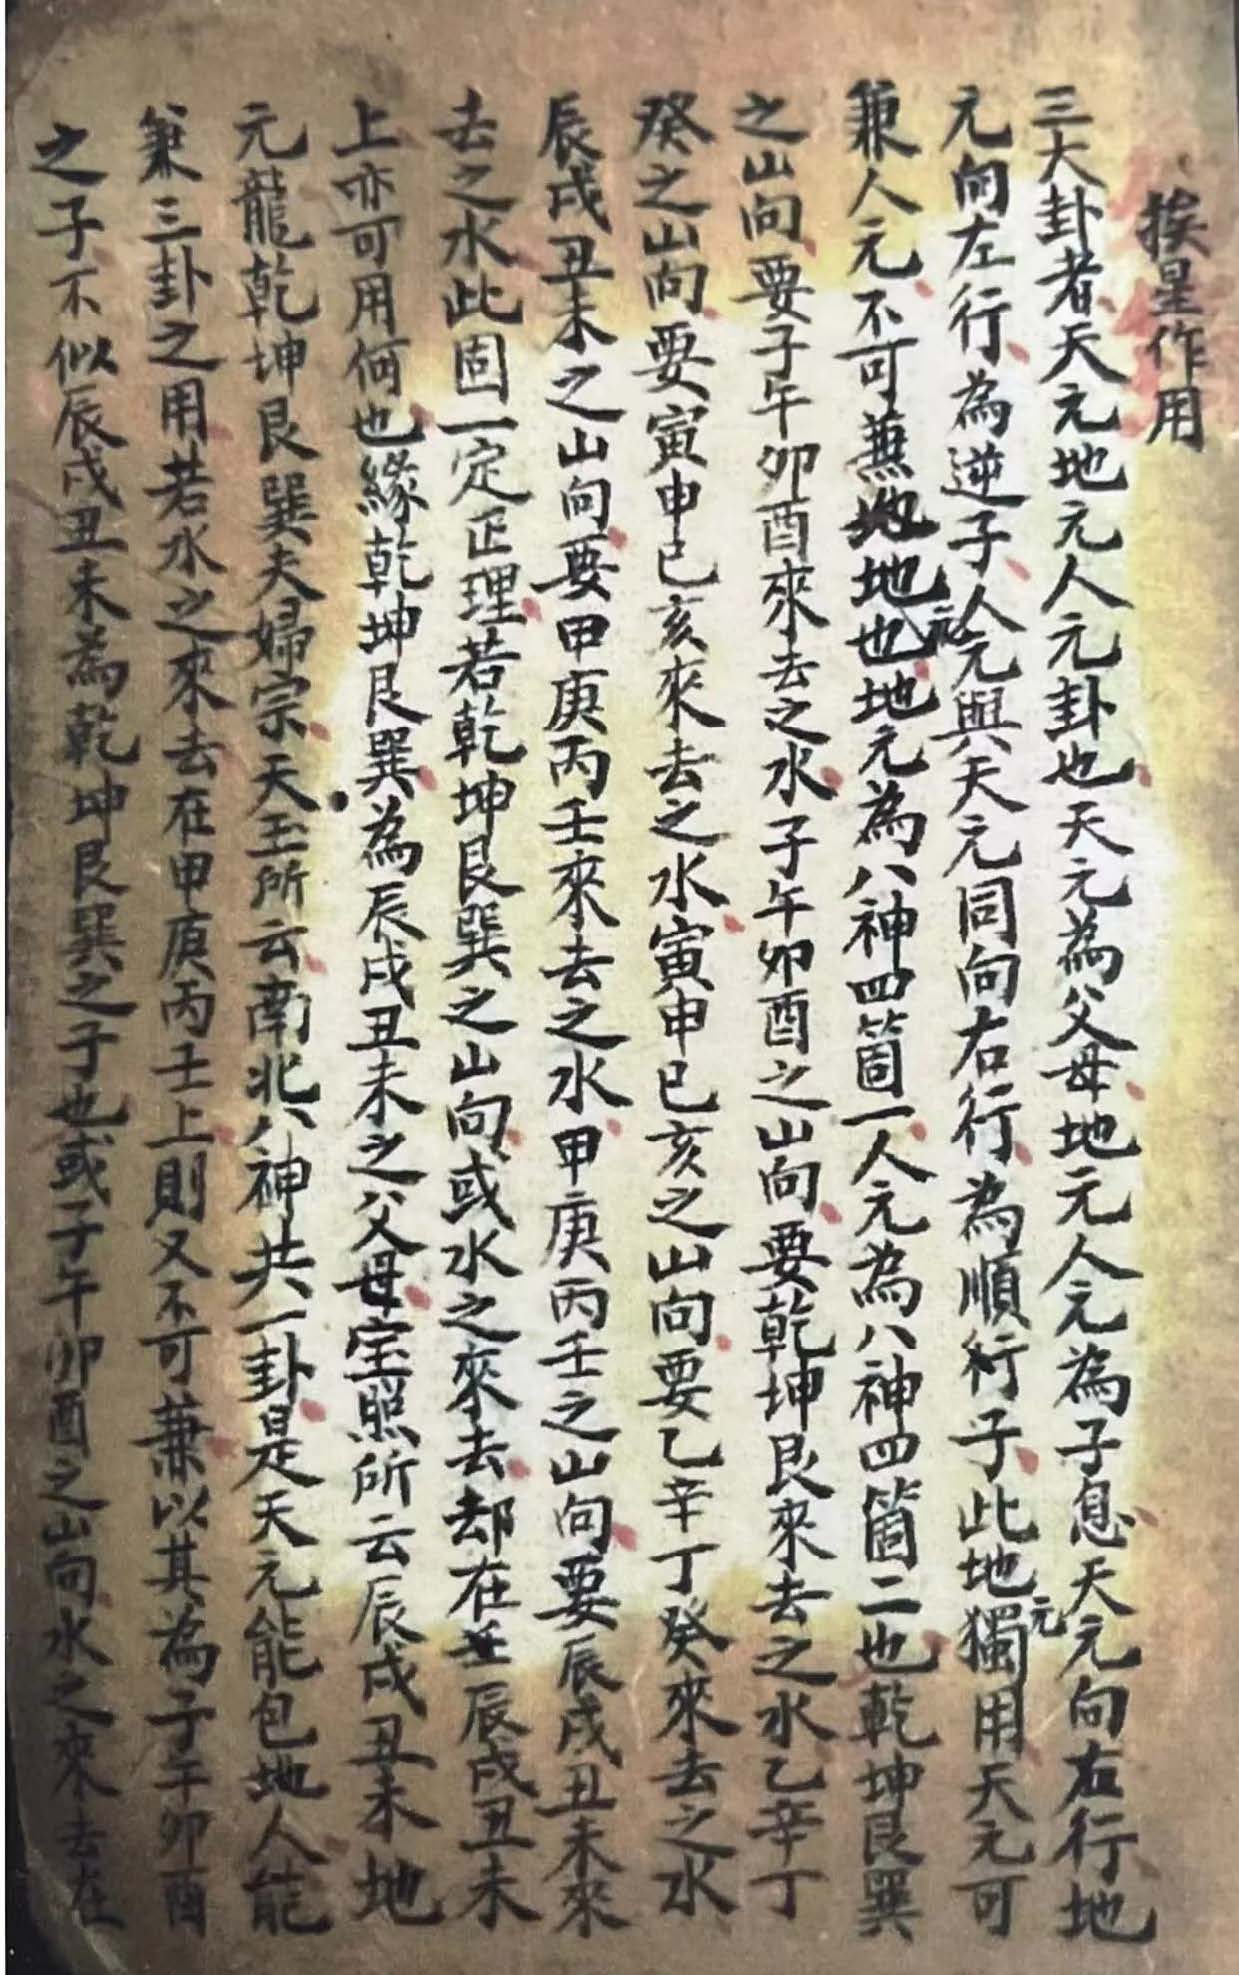 挨星作用
三大卦者天元地元人元卦也天元為父母地元人元為子息天元向右行地
元向左行為逆子人元與天元同向右行為順行子此地元獨用天元可
兼人元不可兼地地元也地元為八神四箇一人元為八神四箇二也乾坤艮巽
之山向要子午卯酉來去之水子午卯酉之山向要乾坤艮來去之水乙辛丁
癸之山向要寅申巳亥來去之水寅申巳亥之山向要乙辛丁癸來去之水
辰戌丑未之山向要甲庚丙壬來去之水甲庚丙壬之山向要辰戌丑未來
去之水此固一定正理若乾坤艮巽之山向或水之來去却在辰戌丑未
上亦可用何也緣乾坤艮巽為辰戌丑未之父母宝照所云辰戌丑未地
元龍乾坤艮巽夫婦宗天玉所云南北八神共一卦是天元能包地人能
兼三卦之用若水之來去在甲庚丙壬上則又不可兼以其為子午卯酉
之子不似辰戌丑未為乾坤艮巽之子也或子午卯酉之山向水之來去在